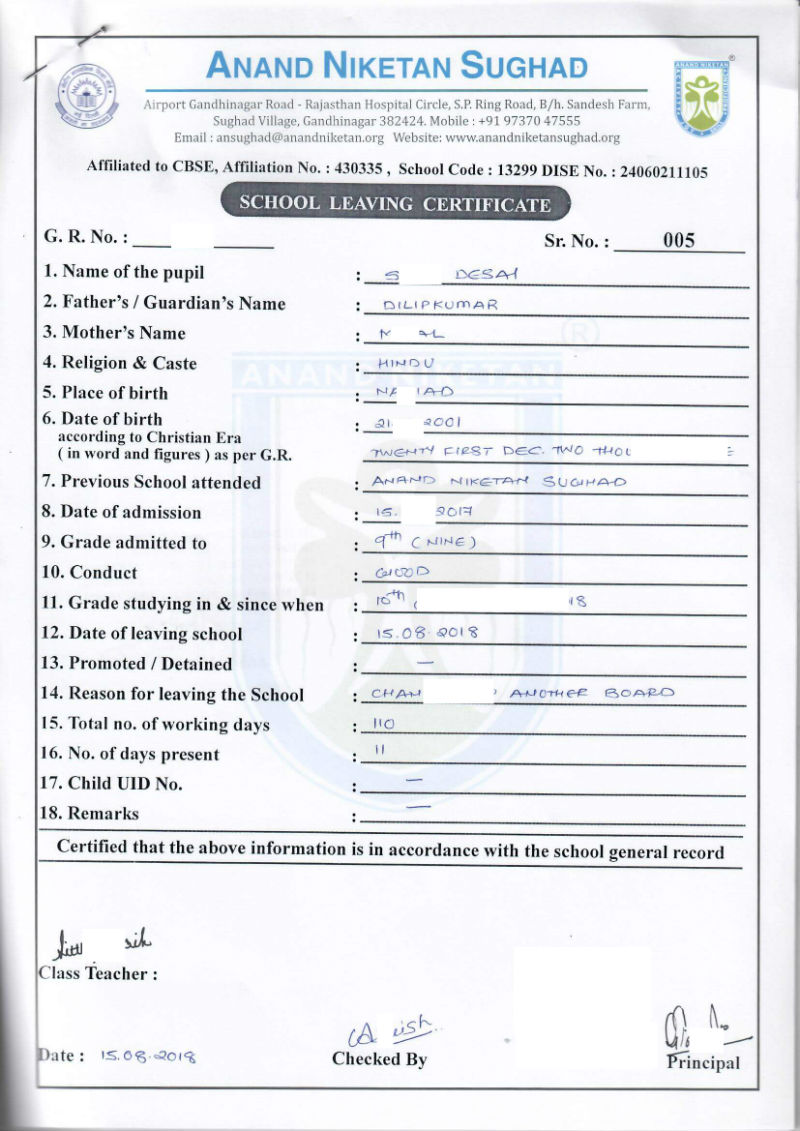 ANAND NIKETAN SUGHAD
Airport Gandhinagar Road - Rajasthan Hospital Circle, S.P. Ring Road, B/h. Sandesh Farm,
Sughad Village, Gandhinagar 382424. Mobile : +91 97370 47555
Email : ansughad@anandniketan.org Website: www.anandniketansughad.org
Affiliated to CBSE, Affiliation No. : 430335 , School Code : 13299 DISE No. : 24060211105
SCHOOL LEAVING CERTIFICATE
G. R. No. :
Sr. No. : 005
1. Name of the pupil : S DESAI
2. Father's / Guardian's Name : DILIPKUMAR
3. Mother's Name :
4. Religion & Caste : HINDU
5. Place of birth : IAD
6. Date of birth : 21. 2001
according to Christian Era
( in word and figures ) as per G.R. TWENTY FIRST DEC. TWO
7. Previous School attended : ANAND NIKETAN SUGHAD
8. Date of admission : 15. 2017
9. Grade admitted to : 9th (NINE)
10. Conduct : GOOD
11. Grade studying in & since when : 10th ( 18
12. Date of leaving school : 15.08.2018
13. Promoted / Detained : —
14. Reason for leaving the School : CHAN ANOTHER BOARD
15. Total no. of working days : 110
16. No. of days present : 11
17. Child UID No. : —
18. Remarks : —
Certified that the above information is in accordance with the school general record
Class Teacher :
Date : 15.08.2018
Checked By
Principal
ANAND NIKETAN